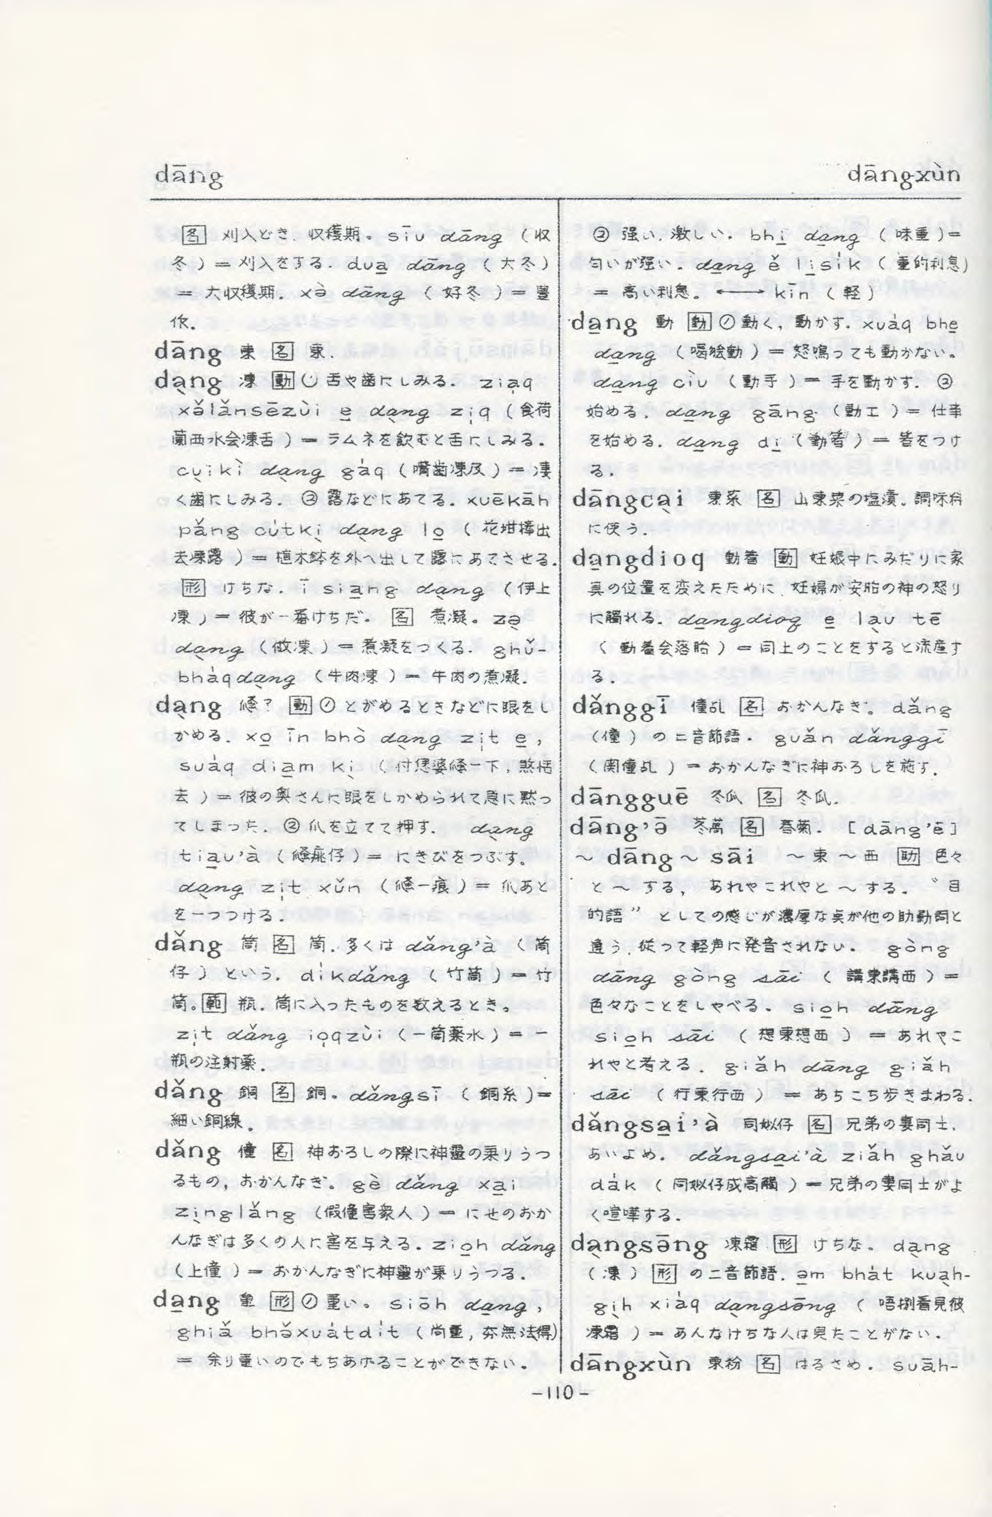 dāng
dāngxùn
名 刈入どき. 収穫期. siū dāng (収
冬) = 刈入をする. dua̱ dāng (大冬)
= 大収穫期. xə̀ dāng (好冬) = 豊
作.
dāng 東 名 東.
dạng 凍 動 ① 舌や歯にしみる. ziaq
xə̌lǎnsēzùi e̱ dạng ziq (食荷
蘭西水会凍舌) = ラムネを飲むと舌にしみる.
cụikì dạng gàq (嘴歯凍及) = 凍
く歯にしみる. ② 露などにあてる. xuēkāh
pǎng cùtkị dạng lo̱ (花坩捧出
去凍露) = 植木鉢を外へ出して露にあてさせる.
形 けちな. ī siạng dạng (伊上
凍) = 彼が一番けちだ. 名 煮凝. zə̣
dạng (做凍) = 煮凝をつくる. ghǔ-
bhàqdạng (牛肉凍) = 牛肉の煮凝.
dạng 㨂? 動 ① とがめるときなどに眼をし
かめる. xo̱ īn bhò dạng zịt e̱,
suàq diạm kị (付恁婆㨂一下, 煞恬
去) = 彼の奥さんに眼をしかめられて急に黙っ
てしまった. ② 爪を立てて押す. dạng
tiạu'à (㨂疵仔) = にきびをつぶす.
dạng zịt xǔn (㨂一痕) = 爪あと
を一つつける.
dǎng 筒 名 筒. 多くは dǎng'à (筒
仔) という. dikdǎng (竹筒) = 竹
筒. 範 瓶. 筒に入ったものを数えるとき.
zịt dǎng ioqzùi (一筒薬水) = 一
瓶の注射薬.
dǎng 銅 名 銅. dǎngsī (銅糸) =
細い銅線.
dǎng 僮 名 神おろしの際に神靈の乗りうつ
るもの, おかんなぎ. gè dǎng xại
zịnglǎng (假僮害衆人) = にせのおか
んなぎは多くの人に害を与える. zio̱h dǎng
(上僮) = おかんなぎに神靈が乗りうつる.
da̱ng 重 形 ① 重い. siōh da̱ng,
ghiǎ bhə̌xuàtdịt (尚重, 夯無法得)
= 余り重いのでもちあげることができない.
② 強い. 激しい. bhi̱ da̱ng (味重) =
匂いが強い. da̱ng ě lịsik (重的利息)
= 高い利息. ←→ kīn (軽)
da̱ng 動 動 ① 動く, 動かす. xuàq bhe̱
da̱ng (喝𣍐動) = 怒鳴っても動かない.
da̱ng ciù (動手) = 手を動かす. ②
始める. da̱ng gāng (動工) = 仕事
を始める. da̱ng di̱ (動箸) = 箸をつけ
る.
dāngcại 東菜 名 山東菜の塩漬. 調味料
に使う.
da̱ngdioq 動着 動 妊娠中にみだりに家
具の位置を変えたために, 妊婦が安胎の神の怒り
に觸れる. da̱ngdioq e̱ lạu tē
(動着会落胎) = 同上のことをすると流産す
る.
dǎnggī 僮乩 名 おかんなぎ. dǎng
(僮) の二音節語. guān dǎnggī
(関僮乩) = おかんなぎに神おろしを施す.
dāngguē 冬瓜 名 冬瓜.
dāng'ə̄ 苳萵 名 春菊. [dāng'ē]
～ dāng ～ sāi ～東～西 助 色々
と～する, あれやこれやと～する. "目
的語" としての感じが濃厚な点が他の助動詞と
違う. 従って軽声に発音されない. gòng
dāng gòng sāi (講東講西) =
色々なことをしゃべる. sio̱h dāng
sio̱h sāi (想東想西) = あれやこ
れやと考える. giǎh dāng giǎh
sāi (行東行西) = あちこち歩きまわる.
dǎngsa̱i'à 同姒仔 名 兄弟の妻同士.
あいよめ. dǎngsa̱i'à ziǎh ghǎu
dàk (同姒仔成高觸) = 兄弟の妻同士がよ
く喧嘩する.
dạngsə̄ng 凍霜 形 けちな. dạng
(凍) 形 の二音節語. ə̱m bhàt kụah-
gịh xiàq dạngsə̄ng (唔捌看見彼
凍霜) = あんなけちな人は見たことがない.
dāngxùn 東粉 名 はるさめ. suāh-
-110-